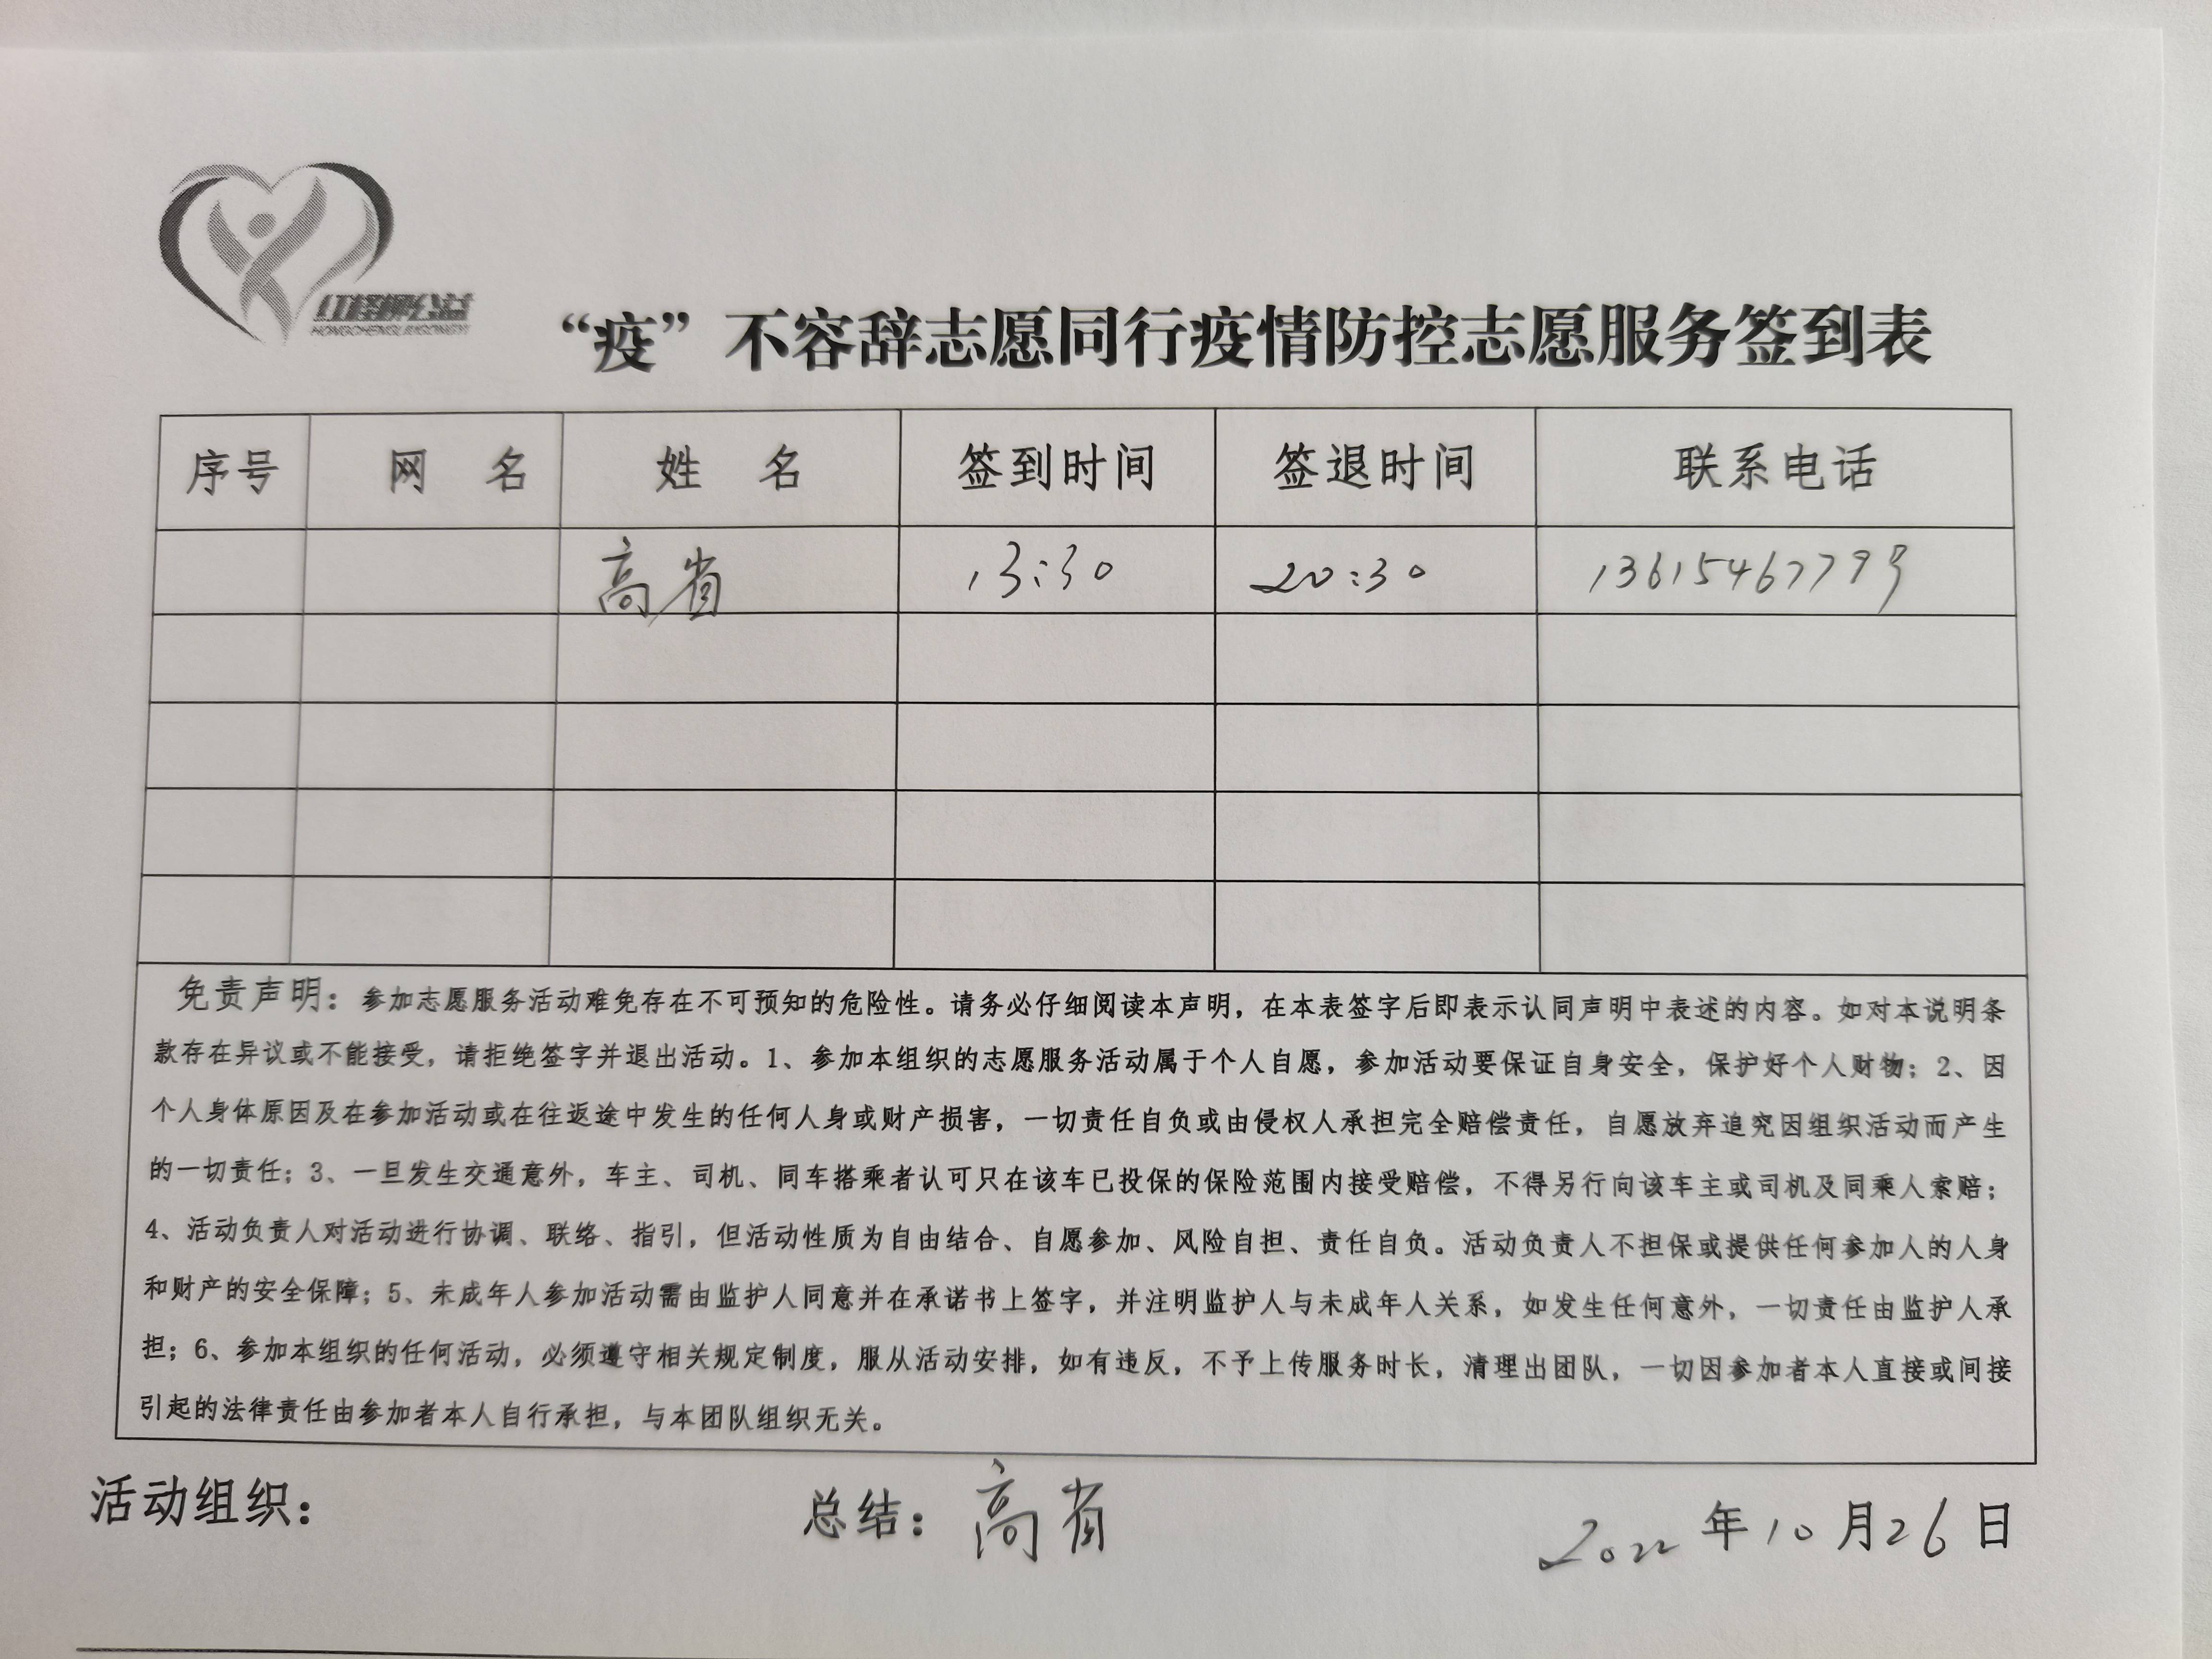 红柽柳公益
“疫”不容辞志愿同行疫情防控志愿服务签到表
序号 网 名 姓 名 签到时间 签退时间 联系电话
高省 13:30 20:30
免责声明：参加志愿服务活动难免存在不可预知的危险性。请务必仔细阅读本声明，在本表签字后即表示认同声明中表述的内容。如对本说明条
款存在异议或不能接受，请拒绝签字并退出活动。1、参加本组织的志愿服务活动属于个人自愿，参加活动要保证自身安全，保护好个人财物；2、因
个人身体原因及在参加活动或在往返途中发生的任何人身或财产损害，一切责任自负或由侵权人承担完全赔偿责任，自愿放弃追究因组织活动而产生
的一切责任；3、一旦发生交通意外，车主、司机、同车搭乘者认可只在该车已投保的保险范围内接受赔偿，不得另行向该车主或司机及同乘人索赔；
4、活动负责人对活动进行协调、联络、指引，但活动性质为自由结合、自愿参加、风险自担、责任自负。活动负责人不担保或提供任何参加人的人身
和财产的安全保障；5、未成年人参加活动需由监护人同意并在承诺书上签字，并注明监护人与未成年人关系，如发生任何意外，一切责任由监护人承
担；6、参加本组织的任何活动，必须遵守相关规定制度，服从活动安排，如有违反，不予上传服务时长，清理出团队，一切因参加者本人直接或间接
引起的法律责任由参加者本人自行承担，与本团队组织无关。
活动组织： 总结：高省 2022年10月26日